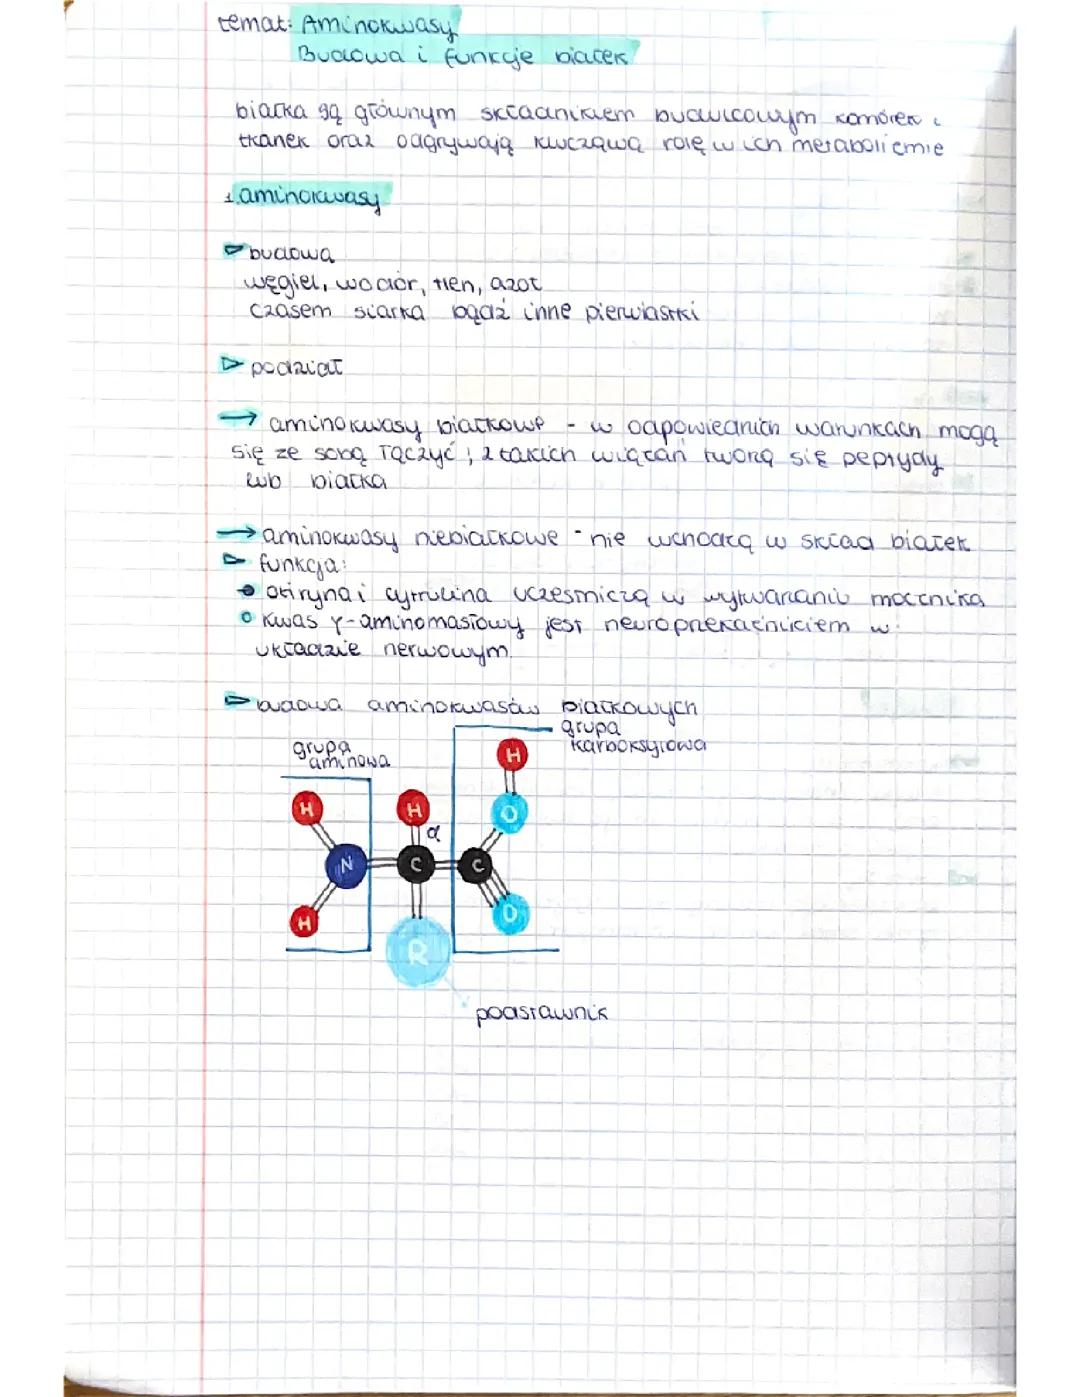 temat: Aminokwasy
Budowa i funkcje białek
białka są głównym składnikiem budulcowym komórek i
tkanek oraz odgrywają kluczową rolę w ich metabolizmie
1. aminokwasy
budowa
węgiel, wodór, tlen, azot
czasem siarka bądź inne pierwiastki
podział
→ aminokwasy białkowe - w odpowiednich warunkach mogą
się ze sobą łączyć; z takich wiązań tworzą się peptydy
lub białka
→ aminokwasy niebiałkowe - nie wchodzą w skład białek
funkcja:
i cytrulina uczestniczą w wytwarzaniu mocznika
kwas γ-aminomasłowy jest neuroprzekaźnikiem w
układzie nerwowym
budowa aminokwasów białkowych
grupa
aminowa
grupa
karboksylowa
H
H H
α O
N C C
H O
R
podstawnik